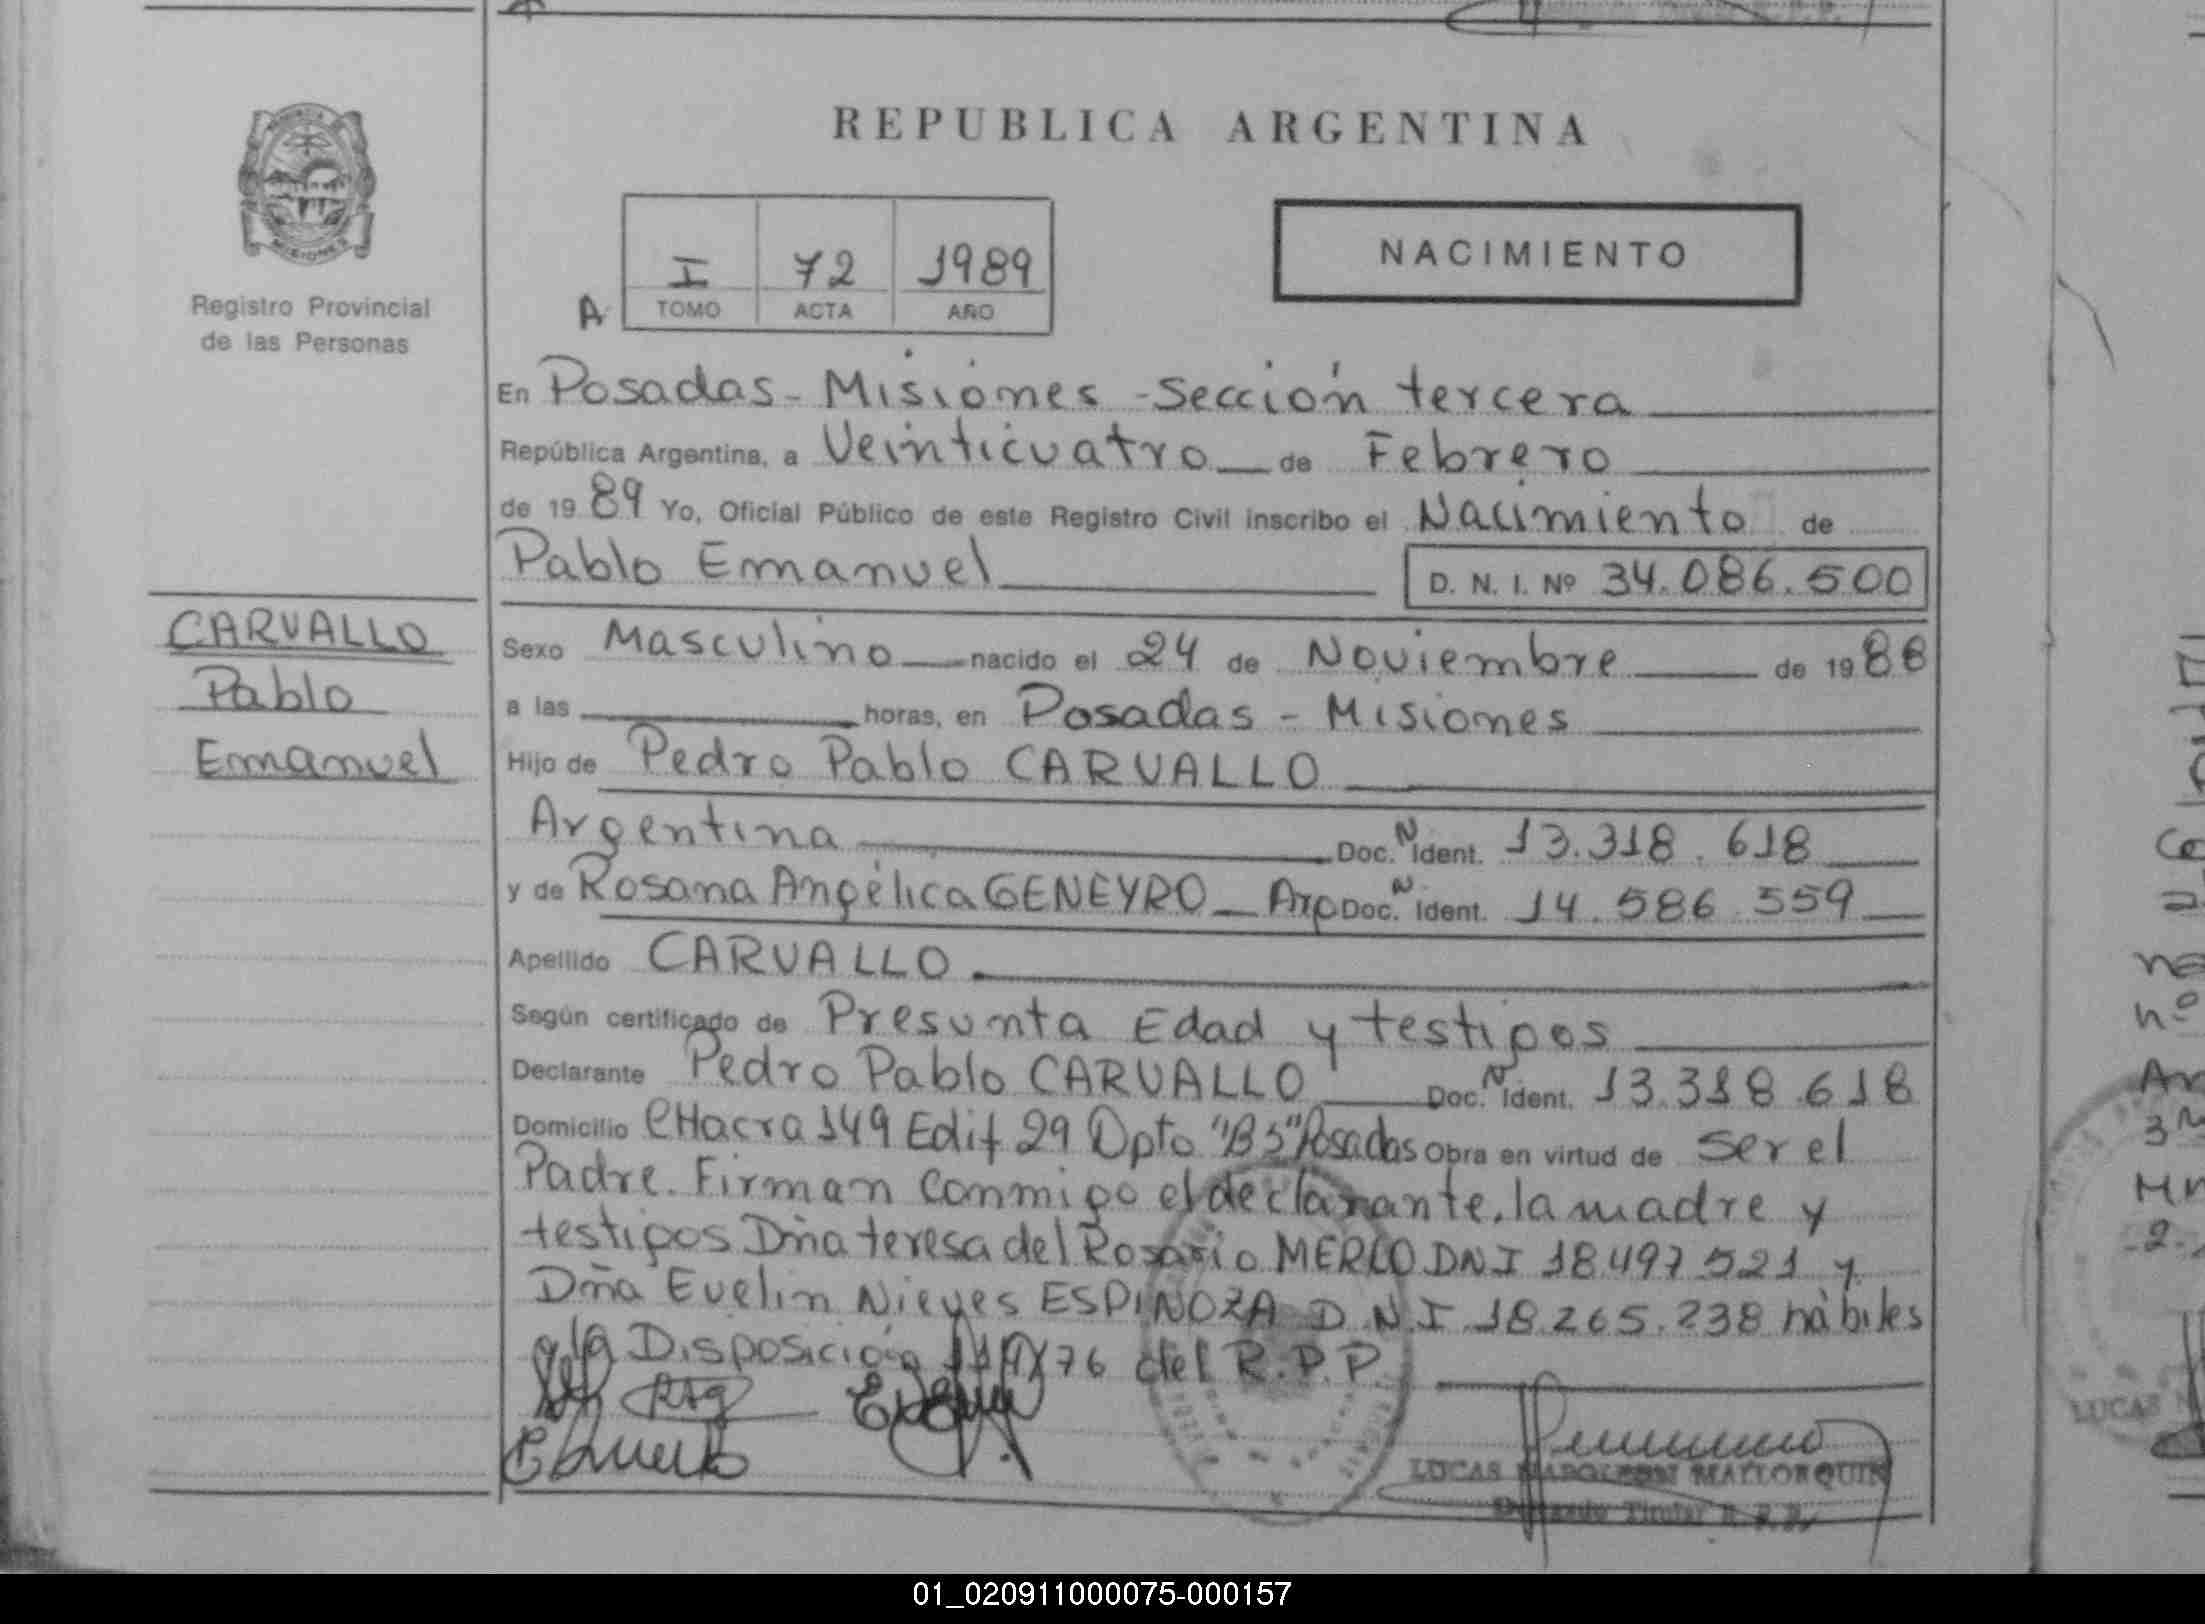 REPUBLICA ARGENTINA
MISIONES
Registro Provincial
de las Personas
A
I 72 1989
TOMO ACTA AÑO
NACIMIENTO
En Posadas - Misiones - Sección tercera
República Argentina, a Veinticuatro de Febrero
de 1989 Yo, Oficial Público de este Registro Civil inscribo el Nacimiento de
Pablo Emanuel D. N. I. Nº 34.086.500
CARVALLO
Pablo
Emanuel
Sexo Masculino nacido el 24 de Noviembre de 1988
a las horas, en Posadas - Misiones
Hijo de Pedro Pablo CARVALLO
Argentina Doc. N Ident. 13.318.618
y de Rosana Angélica GENEYRO Arg Doc. N Ident. 14.586.559
Apellido CARVALLO
Según certificado de Presunta Edad y testigos
Declarante Pedro Pablo CARVALLO Doc. N Ident. 13.318.618
Domicilio CHacra 149 Edif 29 Dpto "B5" Posadas Obra en virtud de ser el
Padre. Firman conmigo el declarante, la madre y
testigos Dña teresa del Rosario MERLO DNI 18.497.521 y
Dña Evelin Nieves ESPINOZA D.N.I 18.265.238 hàbiles
a la Disposición 76 del R.P.P.
LUCAS NAPOLEON MALLORQUIN
Titular R.P.P.
LUCAS
01_020911000075-000157